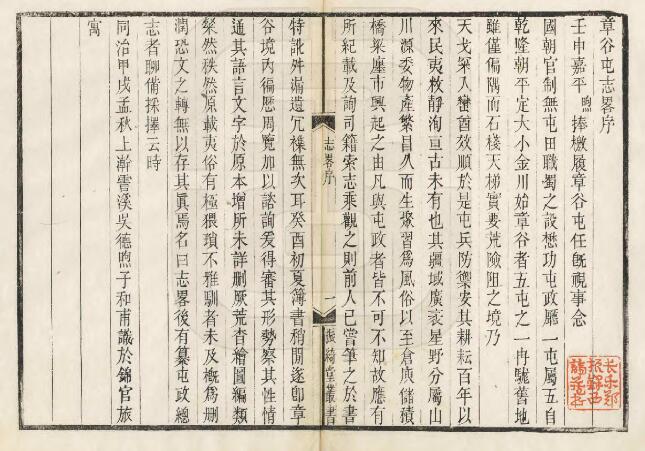 章谷屯志畧序
壬申嘉平煦捧檄履章谷屯任旣視事念
國朝官制無屯田職蜀之設懋功屯政廳一屯屬五自
乾隆朝平定大小金川始章谷者五屯之一冉駹舊地
雖僅偏隅而石棧天梯實要荒險阻之境乃
天戈深入蠻酋效順於是屯兵防禦安其耕耘百年以
來民夷敉靜洵亘古未有也其疆域廣袤星野分屬山
川源委物產繁昌久而生聚習爲風俗以至倉庾儲積
橋梁廛市興起之由凡與屯政者皆不可不知故應有
所紀載及詢司籍索志乘觀之則前人已嘗筆之於書
特訛舛漏遺冗襍無次耳癸酉初夏簿書稍閒逐卽章
谷境內徧歷周覽加以諮詢爰得審其形勢察其性情
通其語言文字於原本增所未詳刪厥荒杳繪圖編類
粲然秩然原載夷俗有極猥瑣不雅馴者未及槪爲刪
潤恐文之轉無以存其眞焉名曰志畧後有纂屯政總
志者聊備採擇云時
同治甲戌孟秋上澣雲溪吳德煦子和甫識於錦官旅
寓
志畧序
一
振綺堂叢書
長樂鄭
振鐸西
諦藏書